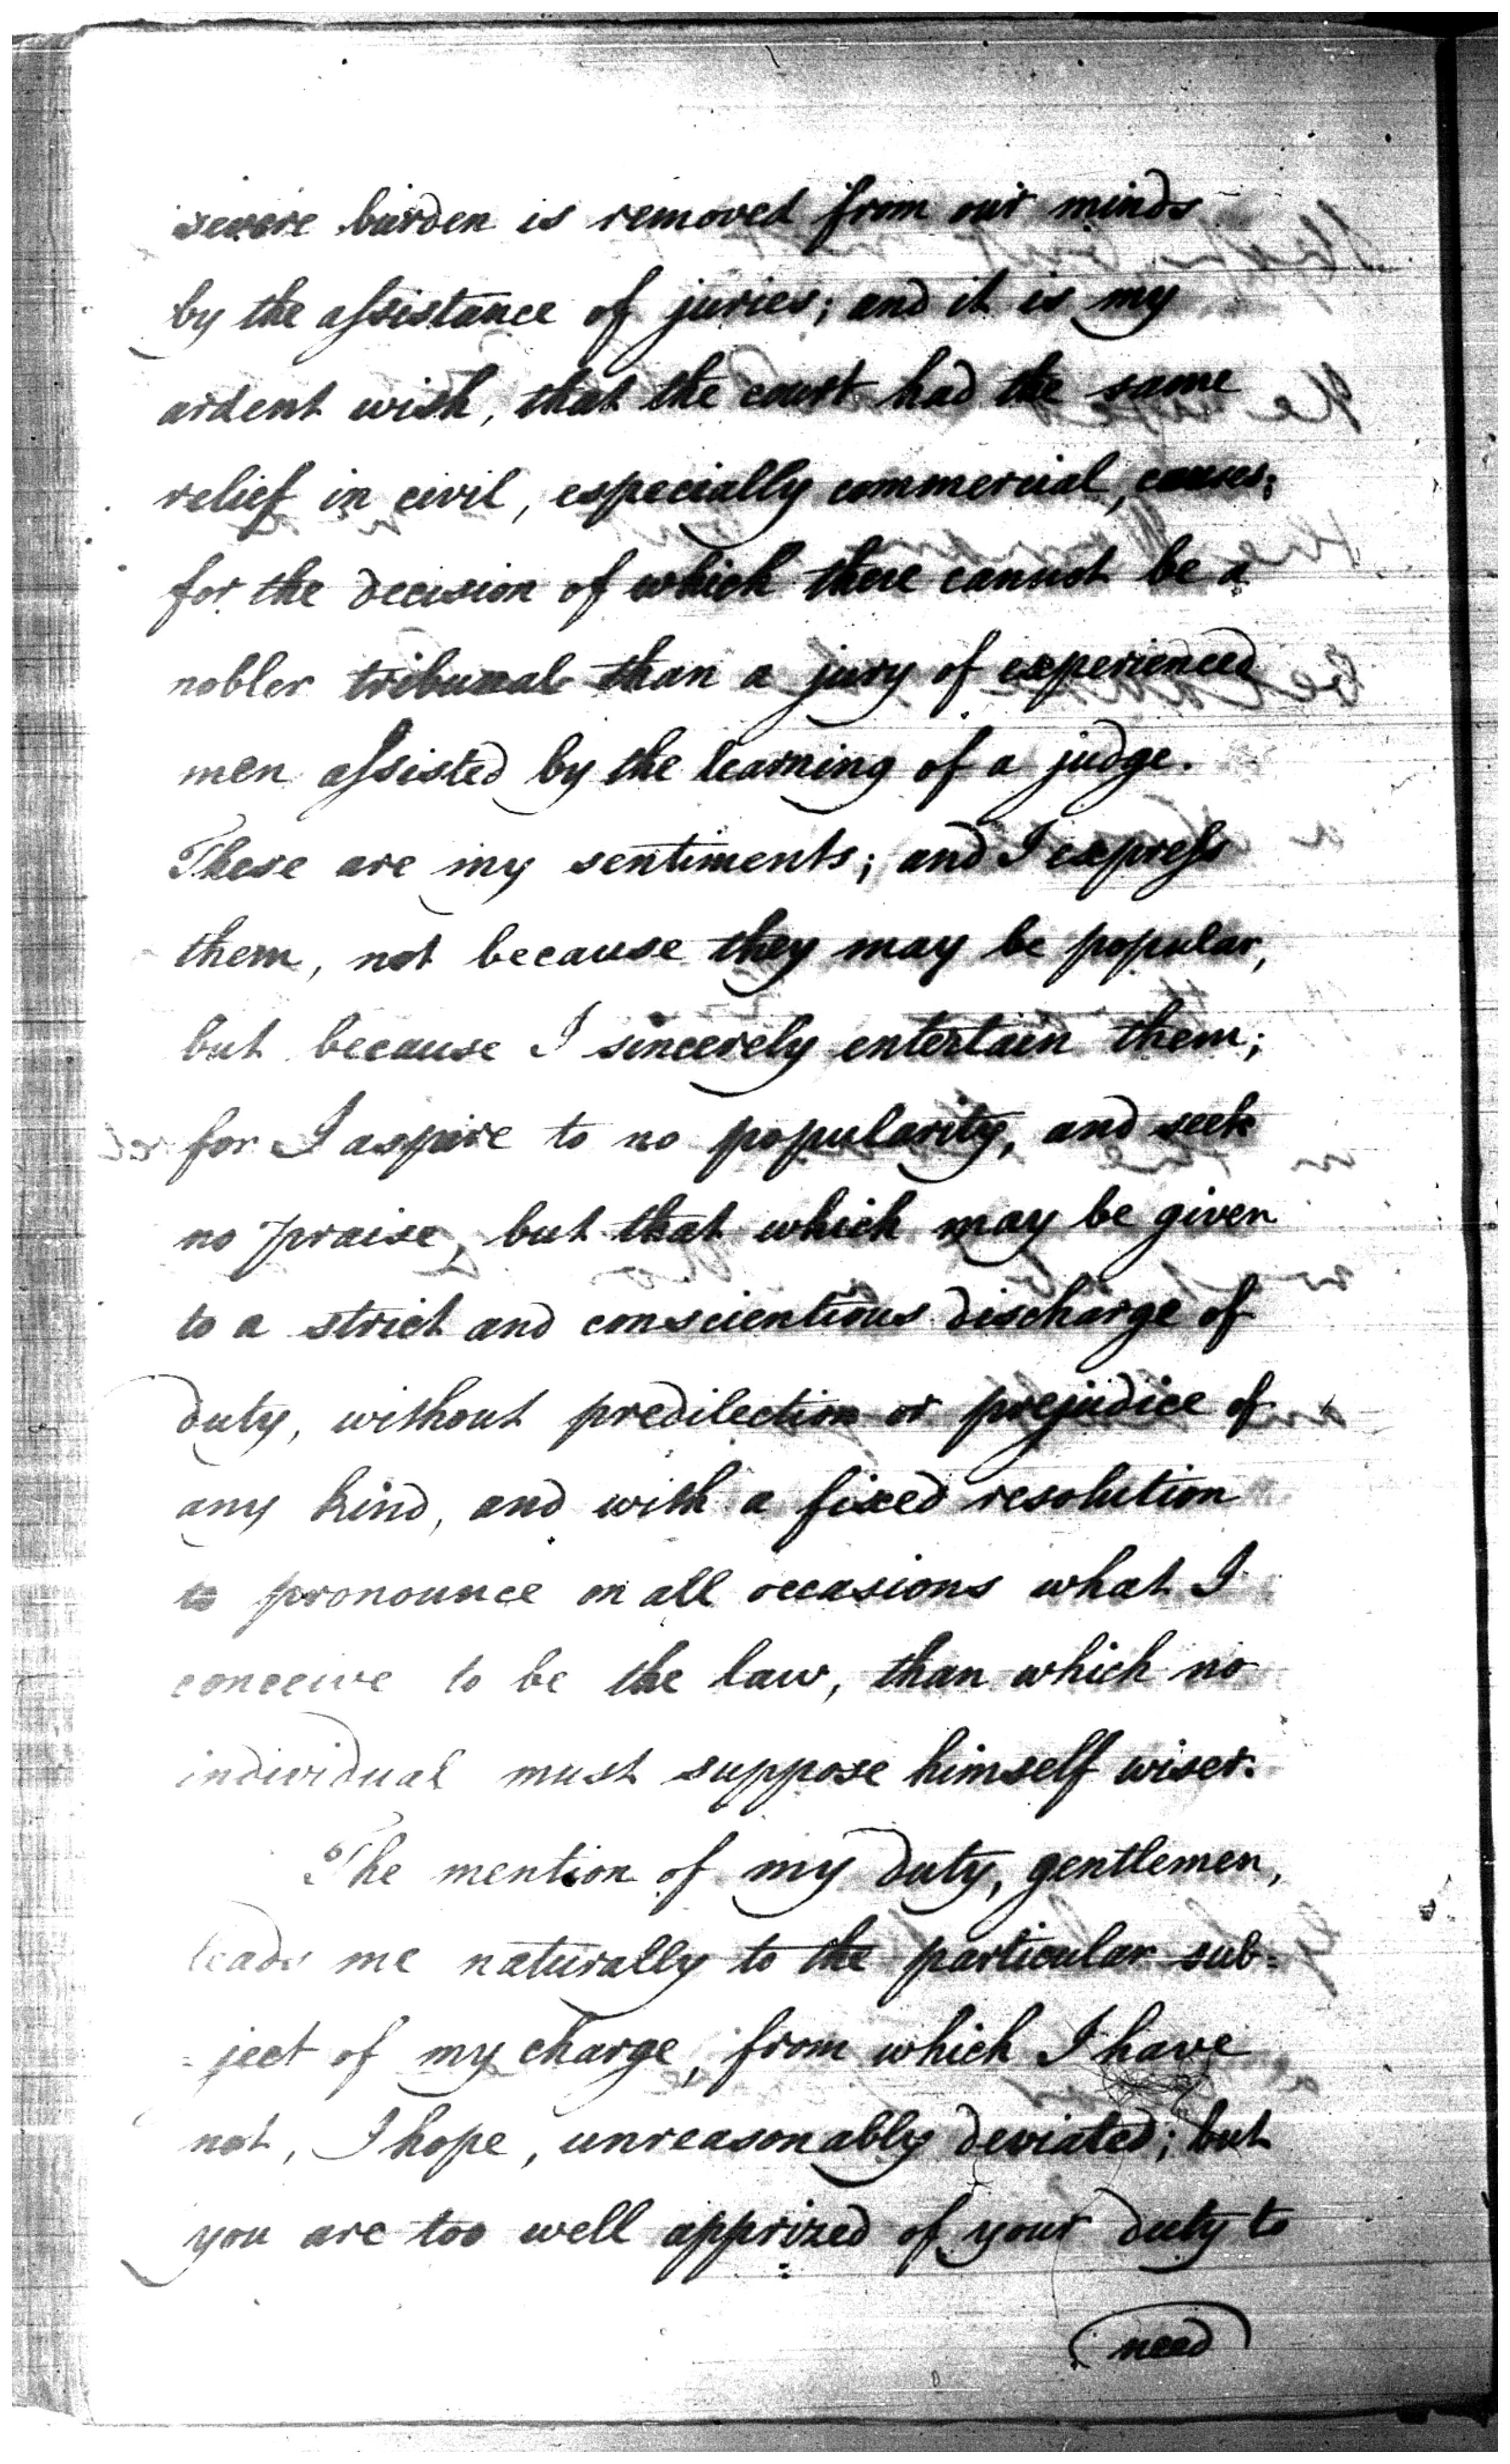 severe burden is removed from our minds
by the aſsistance of juries; and it is my
ardent wish, that the court had the same
relief in civil, especially commercial, causes;
for the decision of which there cannot be a
nobler tribunal than a jury of experienced
men aſsisted by the learning of a judge.
These are my sentiments; and I expreſs
them, not because they may be popular,
but because I sincerely entertain them;
for I aspire to no popularity, and seek
no praise, but that which may be given
to a strict and conscientious discharge of
duty, without predilection or prejudice of
any kind, and with a fixed resolution
to pronounce on all occasions what I
conceive to be the law, than which no
individual must suppose himself wiser.
The mention of my duty, gentlemen,
leads me naturally to the particular sub=
=ject of my charge, from which I have
not, I hope, unreasonably deviated; but
you are too well apprized of your duty to
need